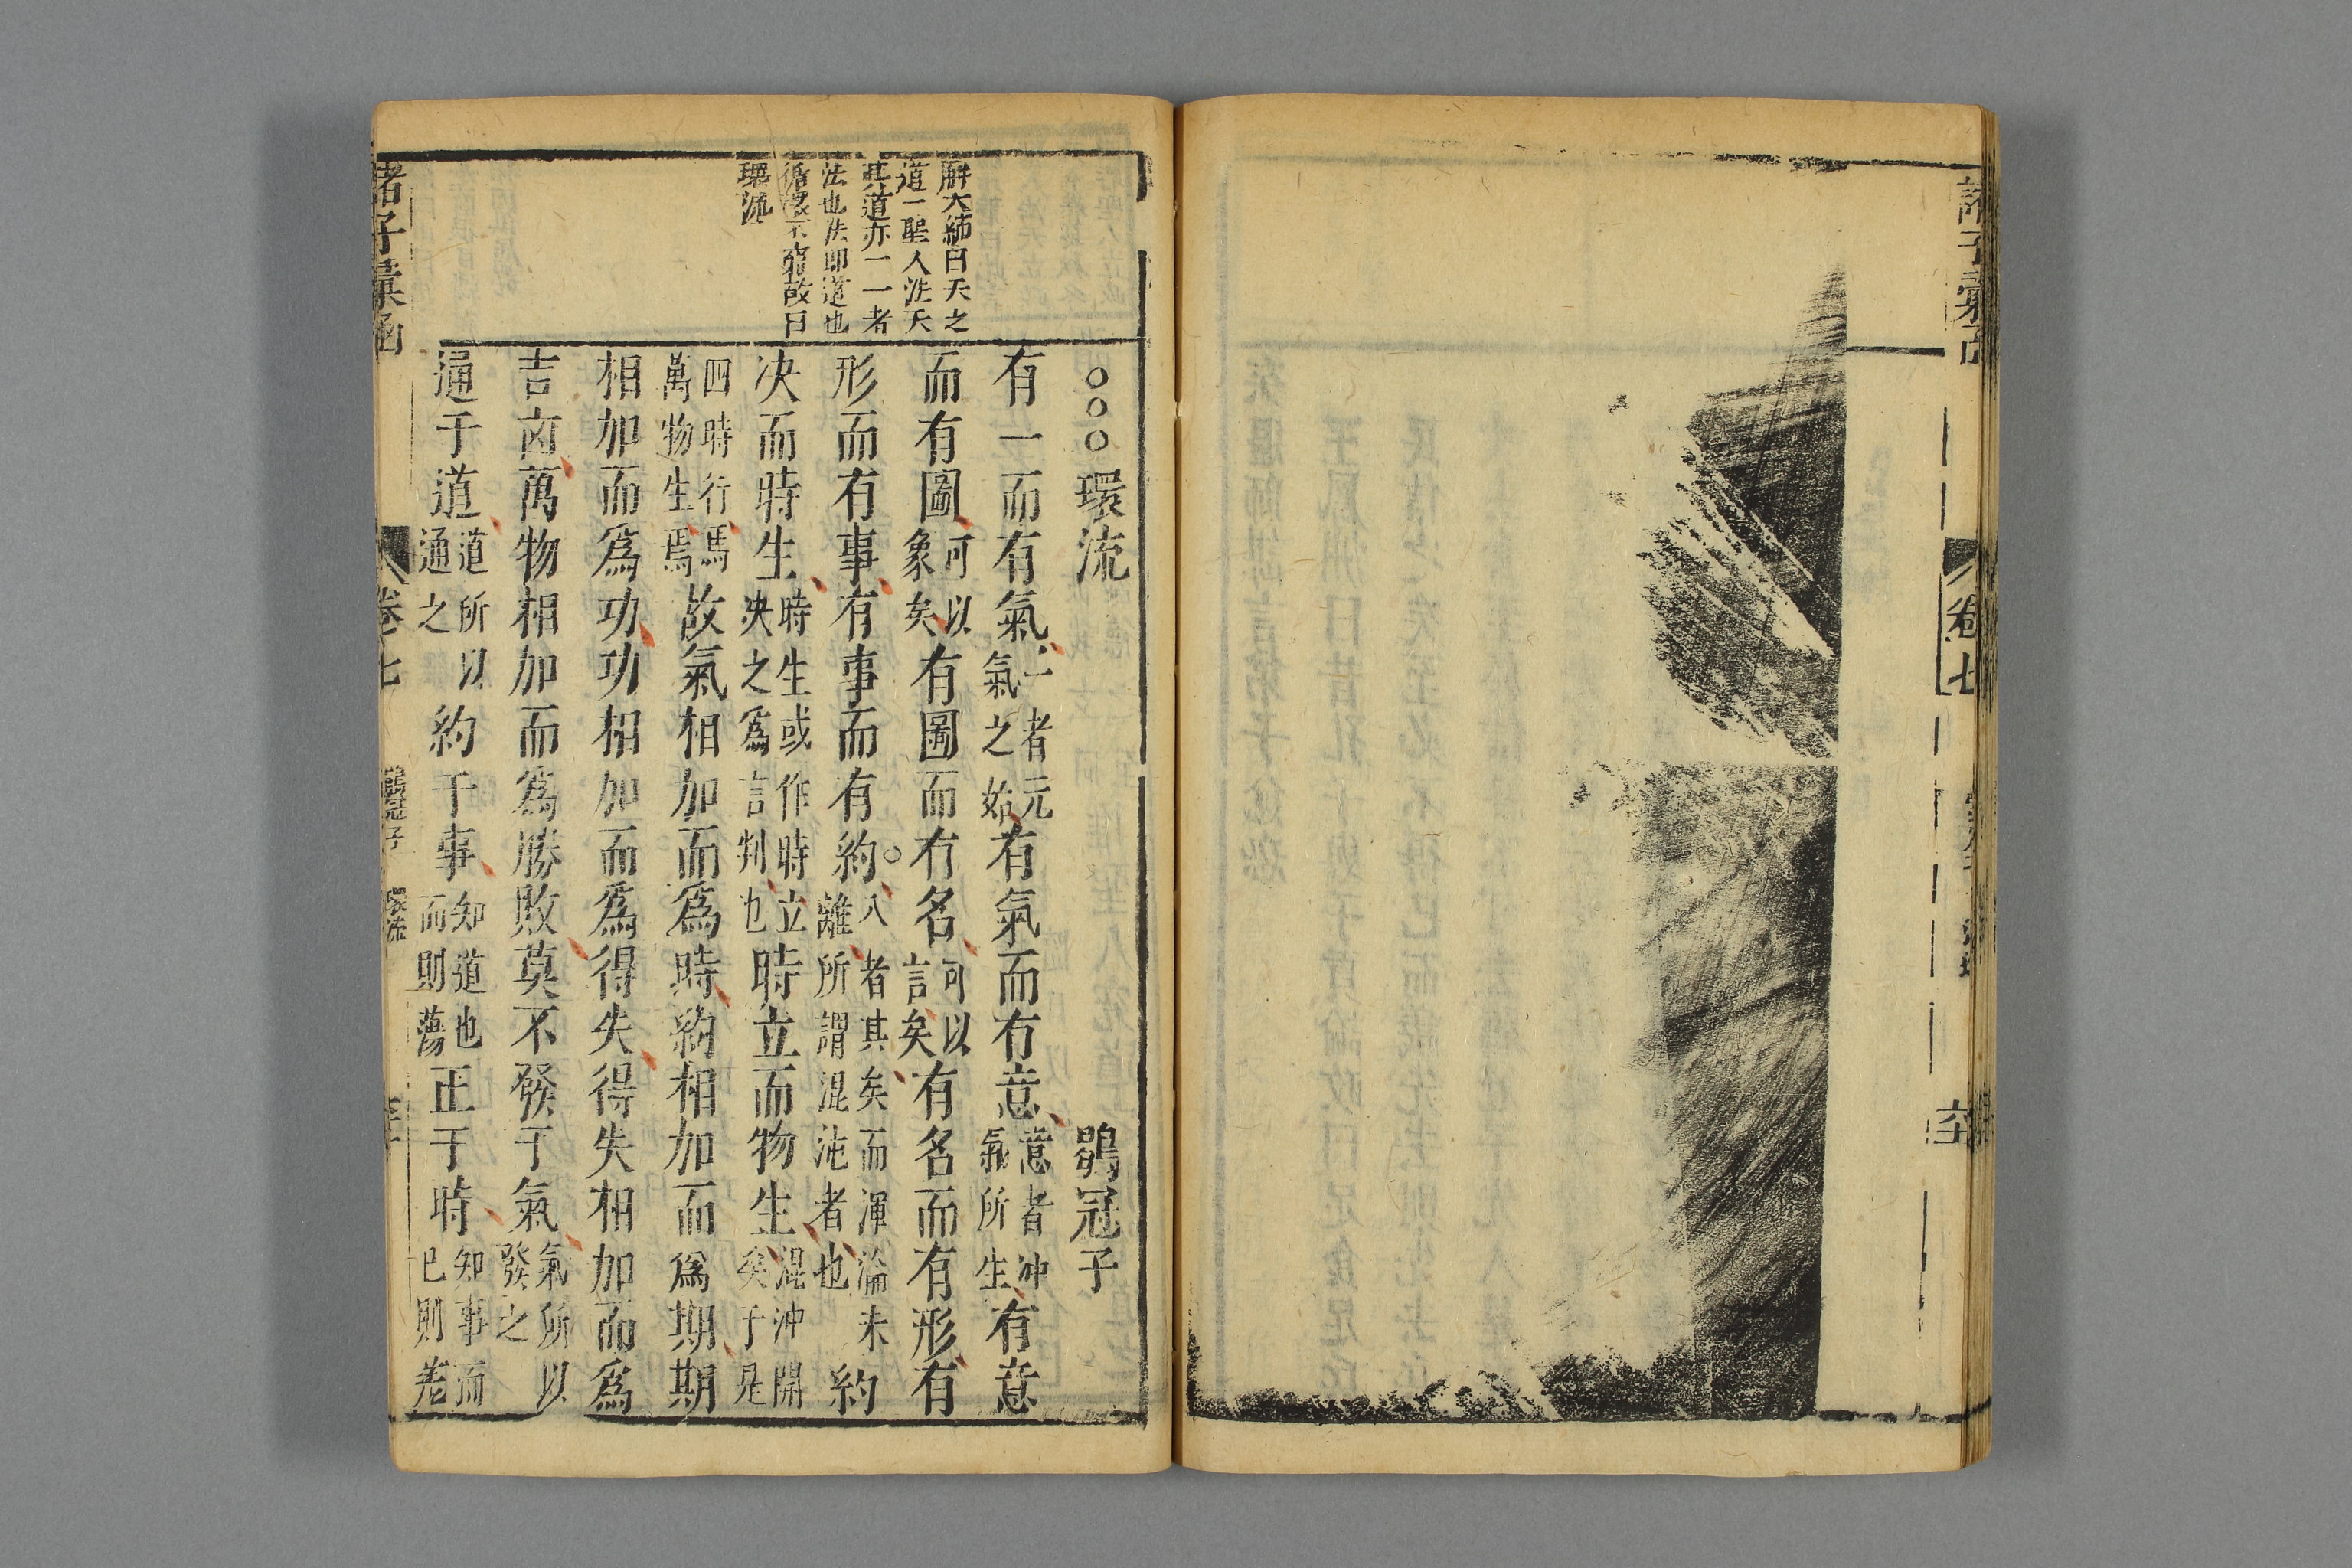 諸子彙函
卷七
解大紳曰天之
道一聖人法天
其道亦一一者
法也法即道也
循環不窮故曰
環流
○○○環流 鶡冠子
有一而有氣一者元氣之始有氣而有意意者冲氣所生有意
而有圖可以象矣有圖而有名可以言矣有名而有形有
形而有事有事而有約○八者其矣而渾淪未離所謂混沌者也約
决而時生時生或作時立决之爲言判也時立而物生混沖開矣于是
四時行焉萬物生焉故氣相加而爲時約相加而爲期期
相加而爲功功相加而爲得失得失相加而爲
吉凶萬物相加而爲勝敗莫不發于氣氣所以發之
通于道道所以通之約于事知道也而則蕩正于時知事而已則差
諸子彙函
卷七
鶡冠子
環流